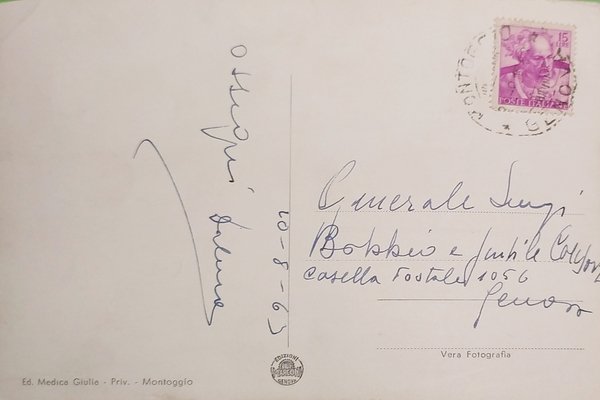 Ossequi
10-8-63
MONTOGGIO
GENOVA
15
POSTE ITALIANE
Generale Luigi
Bobbio e gentile
Casella Postale 1056
Genova
Vera Fotografia
Ed. Medica Giulia - Priv. - Montoggio
EDIZIONI
GENOVA